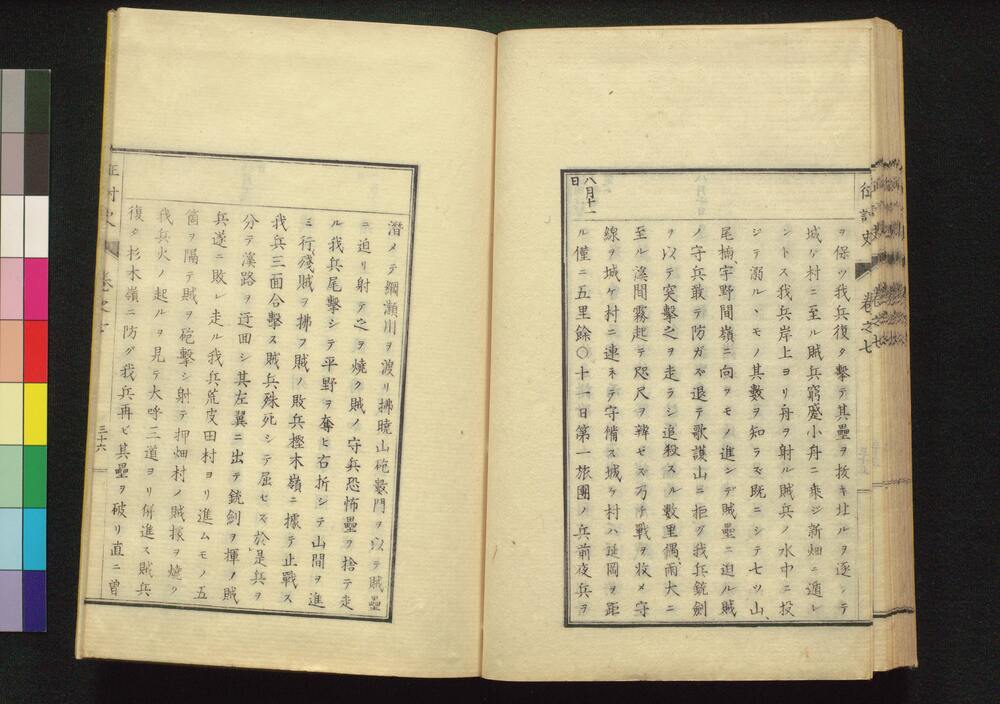 征討史
卷之七
八月十一日
ヲ保ツ我兵復タ擊テ其壘ヲ拔キ北ルヲ逐ンテ
城ケ村ニ至ル賊兵窮蹙小舟ニ乗ジ新畑ニ遁レ
ントス我兵岸上ヨリ舟ヲ射ル賊兵ノ水中ニ投
ジテ溺ルヽモノ其數ヲ知ラズ既ニシテ七ツ山、
尾楠、宇野間嶺ニ向ヲモノ進ンデ賊壘ニ迫ル賊
ノ守兵敢テ防ガズ退テ歌護山ニ拒グ我兵銃劍
ヲ以テ突擊之ヲ走ラシ追殺スル數里偶雨大ニ
至ル溪間霧起テ咫尺ヲ辨ゼズ乃チ戰ヲ收メ守
線ヲ城ケ村ニ連ネテ守備ス城ケ村ハ延岡ヲ距
ル僅ニ五里餘〇十一日第一旅團ノ兵前夜兵ヲ
潜メテ綱瀬川ヲ渡リ拂曉山砲數門ヲ以テ賊壘
ニ迫リ射テ之ヲ燒ク賊ノ守兵恐怖壘ヲ捨テ走
ル我兵尾擊シテ平野ヲ奪ヒ右折シテ山間ヲ進
ミ行殘賊ヲ拂フ賊ノ敗兵樫木嶺ニ據テ止戰ス
我兵三面合擊ス賊兵殊死シテ屈セズ於是兵ヲ
分テ溪路ヲ迂回シ其左翼ニ出テ銃劍ヲ揮ノ賊
兵遂ニ敗レ走ル我兵荒皮田村ヨリ進ムモノ五
箇ヲ隔テ賊ヲ砲擊シ射テ押畑村ノ賊據ヲ燒ク
我兵火ノ起ルヲ見テ大呼三道ヨリ併進ス賊兵
復タ杉木嶺ニ防グ我兵再ビ其壘ヲ破リ直ニ曽
三十六